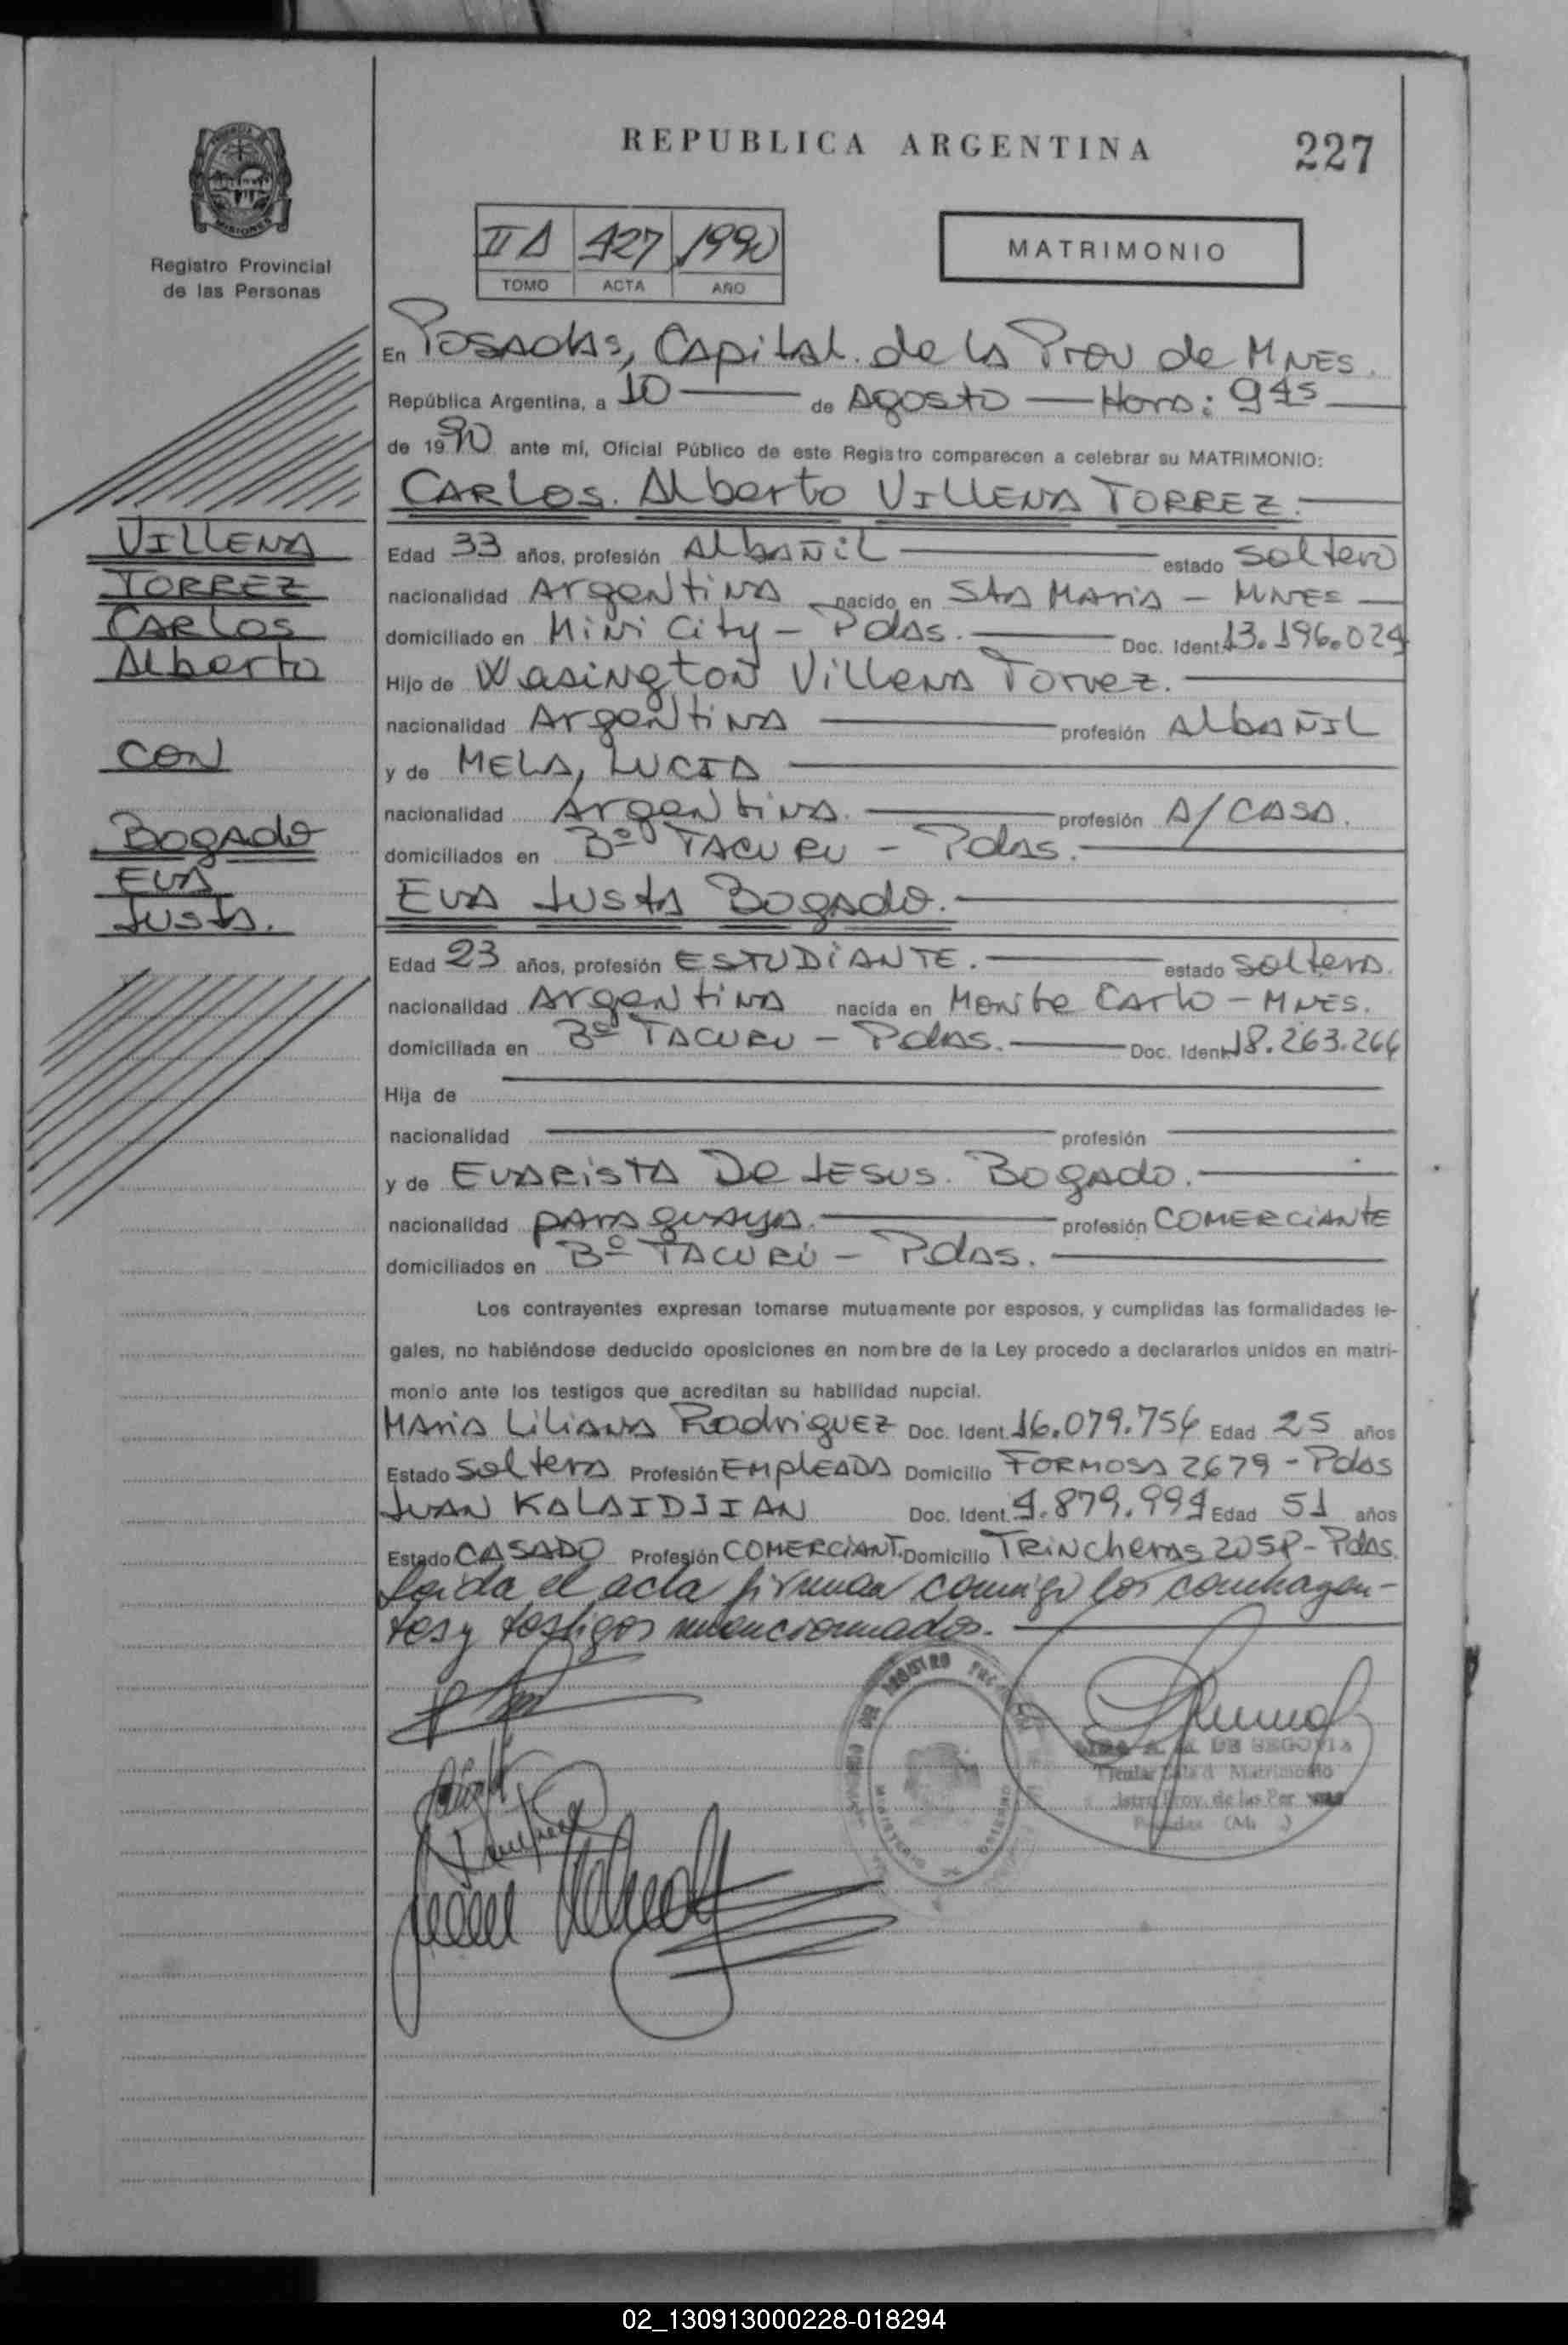 REPUBLICA ARGENTINA
227
MISIONES
Registro Provincial
de las Personas
II A 427 1990
TOMO ACTA AÑO
MATRIMONIO
En Posadas, Capital de la Prov de MNES.
República Argentina, a 10 de Agosto Hora: 9 45
de 1990 ante mí, Oficial Público de este Registro comparecen a celebrar su MATRIMONIO:
CARLOS. Alberto VILLENA TORREZ.
Edad 33 años, profesión AlbAÑiL estado Soltero
nacionalidad Argentina nacido en Sta Maria - MNES
domiciliado en Mini City - Pdas. Doc. Ident. 13.196.024
Hijo de Wasington Villena Torrez.
nacionalidad Argentina profesión AlbAÑIL
y de MELA, LUCIA
nacionalidad Argentina. profesión A/CASA.
domiciliados en Bº TACURU - Pdas.
EVA Justa Bogado.
Edad 23 años, profesión ESTUDIANTE. estado Soltera.
nacionalidad Argentina nacida en Monte Carlo - MNES.
domiciliada en Bº TACURU - Pdas. Doc. Ident. 18.263.266
Hija de
nacionalidad profesión
y de EVARISTA De JESUS. Bogado.
nacionalidad paraguaya. profesión COMERCIANTE
domiciliados en Bº TACURÚ - Pdas.
Los contrayentes expresan tomarse mutuamente por esposos, y cumplidas las formalidades le-
gales, no habiéndose deducido oposiciones en nombre de la Ley procedo a declararlos unidos en matri-
monio ante los testigos que acreditan su habilidad nupcial.
Maria Liliana Rodriguez Doc. Ident. 16.079.756 Edad 25 años
Estado Soltera Profesión EMPLEADA Domicilio FORMOSA 2679 - Pdas
JUAN KALAIDJIAN Doc. Ident. 4.879.994 Edad 51 años
Estado CASADO Profesión COMERCIANT. Domicilio TRINCheras 2058 - Pdas.
Leida el acta firman conmigo los contrayen-
tes y testigos mencionados.
A. M. DE SEGOVIA
Titular Matrimonio
Prov. de las Per
VILLENA
TORREZ
CARLOS
Alberto
CON
Bogado
EVA
Justa.
02_130913000228-018294